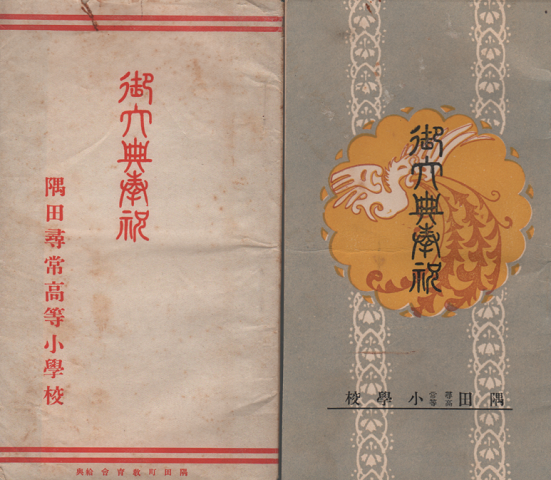 御大典奉祝
隅田尋常高等小學校
隅田町教育會給與
御大典奉祝
隅田尋常高等小學校